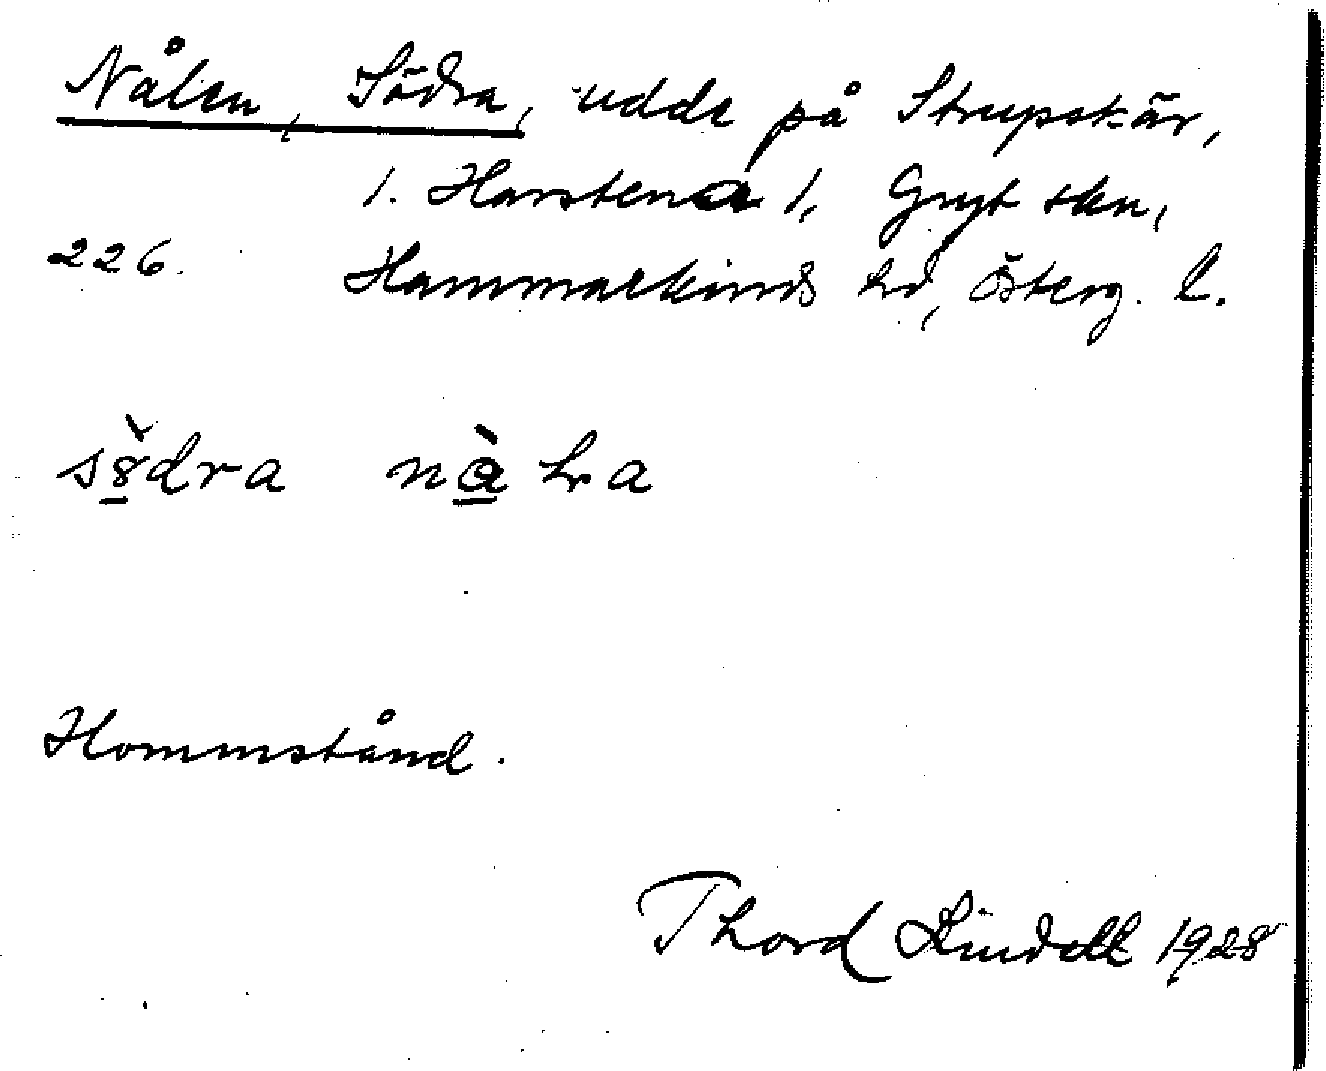 Nålen, Södra, udde på Strupskär,
1. Harstena 1, Gryt skn,
226. Hammarkinds hd, Österg. l.
södra
Hommstånd.
Thord Lindell 1928